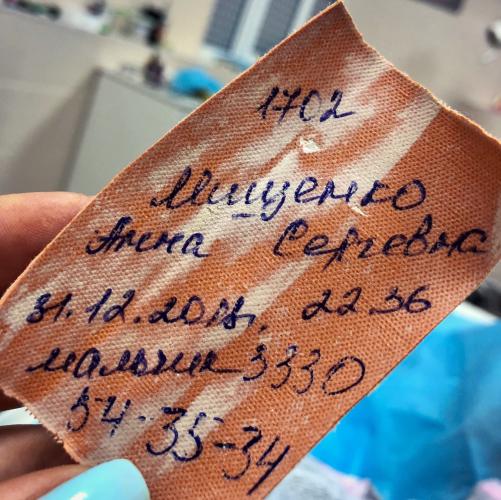 1702
Мищенко
Анна Сергевна
31.12.2018г. 22 36
мальчик 3330
54-35-34